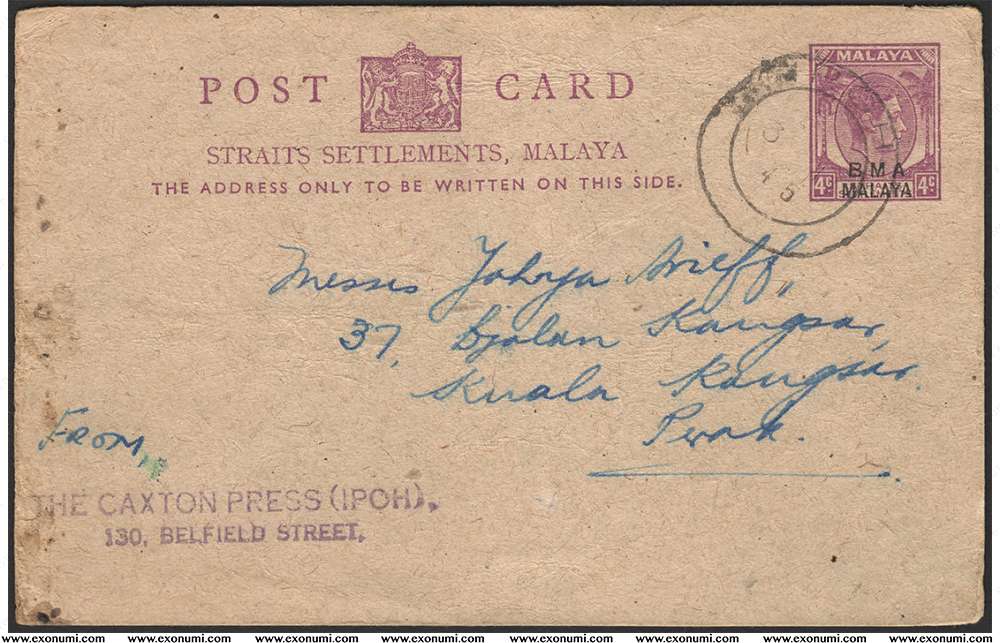 POST CARD
STRAITS SETTLEMENTS, MALAYA
THE ADDRESS ONLY TO BE WRITTEN ON THIS SIDE.
MALAYA
B M A
MALAYA
4c 4c
Messrs Yahya Arieff,
37, Djalan Kangsar,
Kuala Kangsar.
Perak.
From,
THE CAXTON PRESS (IPOH),
130, BELFIELD STREET,
www.exonumi.com www.exonumi.com www.exonumi.com www.exonumi.com www.exonumi.com www.exonumi.com www.exonumi.com www.exonumi.com